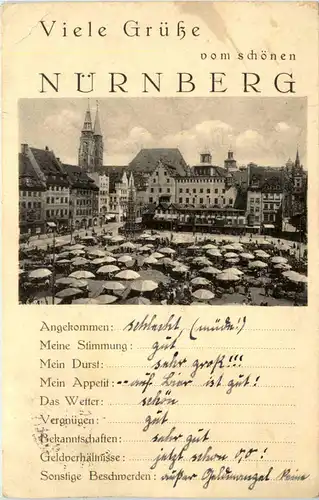 Viele Grüße
vom schönen
NÜRNBERG
Angekommen: schlecht, (müde!)
Meine Stimmung: gut
Mein Durst: sehr groß!!!
Mein Appetit: auf Bier ist gut!
Das Wetter: schön
Vergnügen: gut
Bekanntschaften: sehr gut
Geldverhältnisse: jetzt schon 0,0!
Sonstige Beschwerden: außer Geldmangel keine